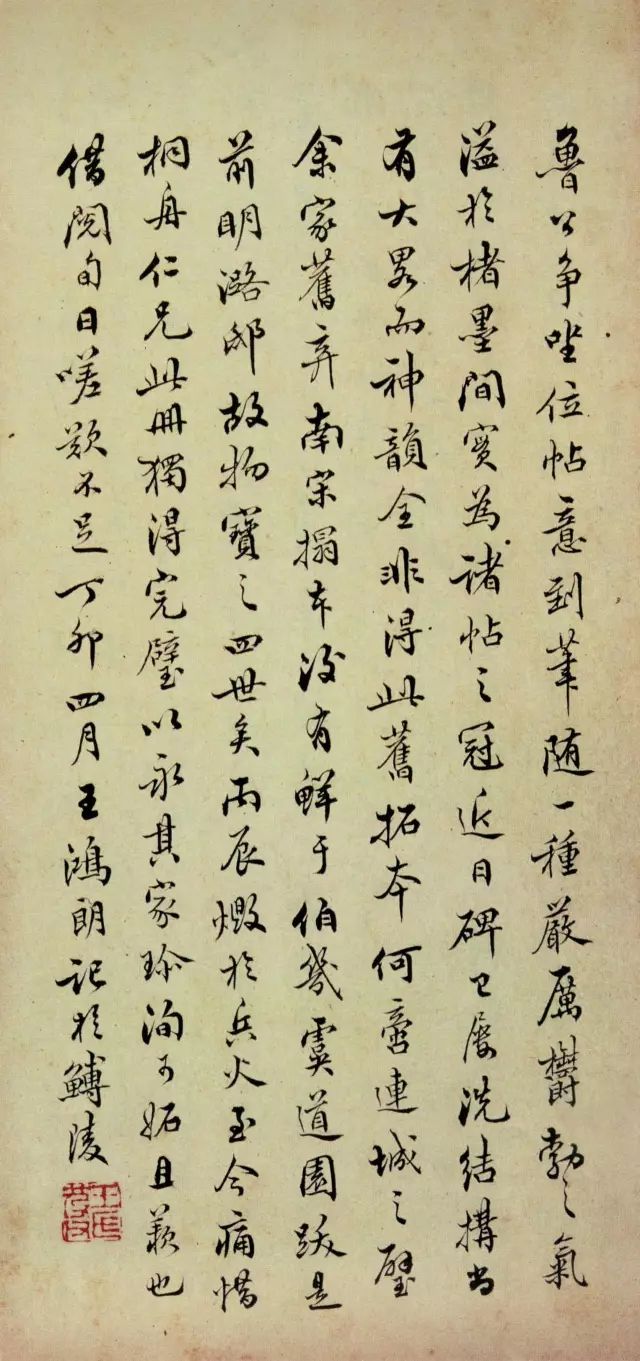 魯公争坐位帖意到筆随一種嚴厲欝勃之氣
溢於楮墨間實為諸帖之冠近日碑已屡洗結搆尚
有大畧而神韻全非得此舊拓本何啻連城之璧
余家舊弆南宋搨本没有鮮于伯幾虞道園跋是
前明潞邸故物寶之四世矣丙辰燬於兵火至今痛惜
桐舟仁兄此冊獨得完璧以永其家珎洵可妬且羨也
借閲旬日嗟歎不足丁卯四月王鴻朗記於鱄陵